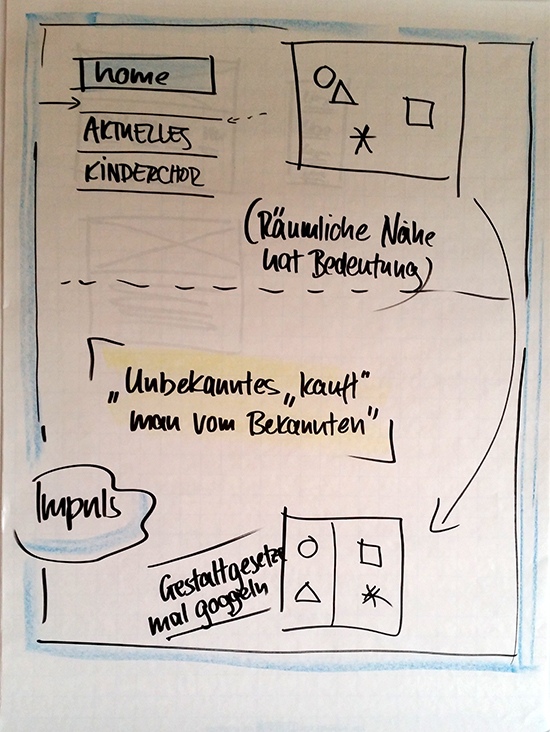 home
AKTUELLES
KINDERCHOR
(Räumliche Nähe
hat Bedeutung)
„Unbekanntes „kauft"
man vom Bekannten"
Impuls
Gestaltgesetze
mal googeln